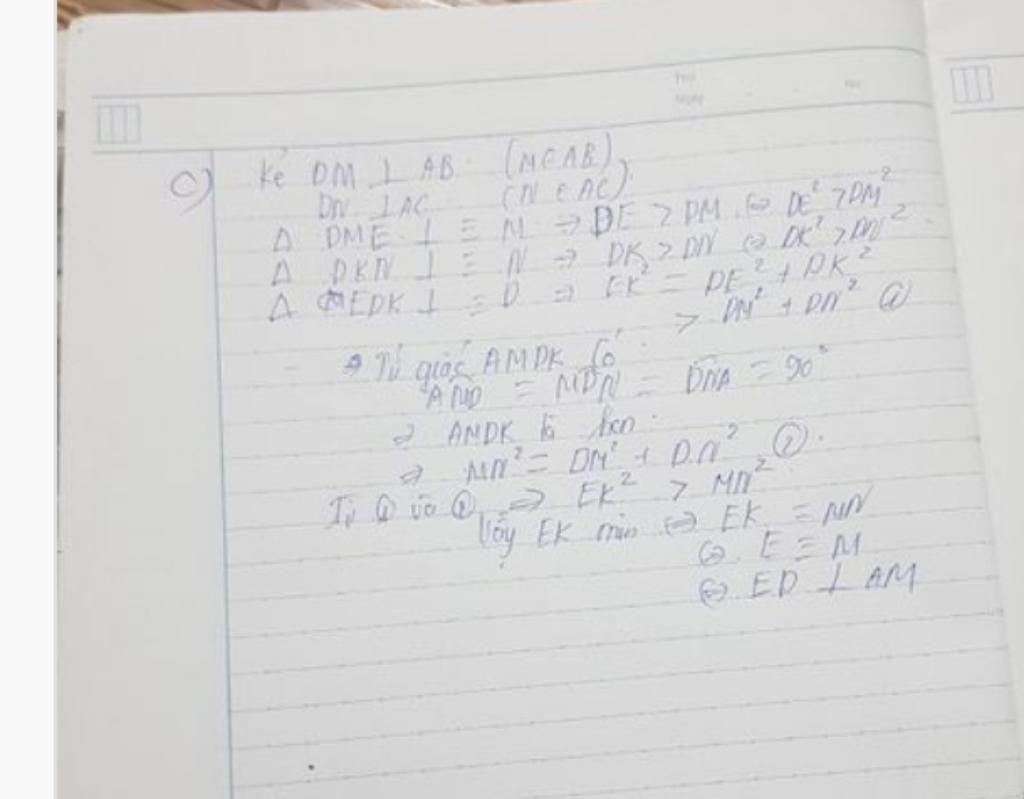 Thứ
Ngày No
c) Kẻ DM ⊥ AB (M ∈ AB)
DN ⊥ AC (N ∈ AC).
Δ DME ⊥ ≡ M → DE > DM ⇔ DE² > DM²
Δ DKN ⊥ ≡ N → DK > DN ⇔ DK² > DN².
Δ EDK ⊥ ≡ D ⇒ EK² = DE² + DK²
> DM² + DN² ①
Tứ giác AMDK Có
= MDN = DNA = 90°
⇒ AMDK là hcn.
⇒ MN² = DM² + DN² ②.
Từ ① và ⇒ EK² > MN²
Vậy EK min ⇔ EK = MN
⇔ E ≡ M
⇔ ED ⊥ AM